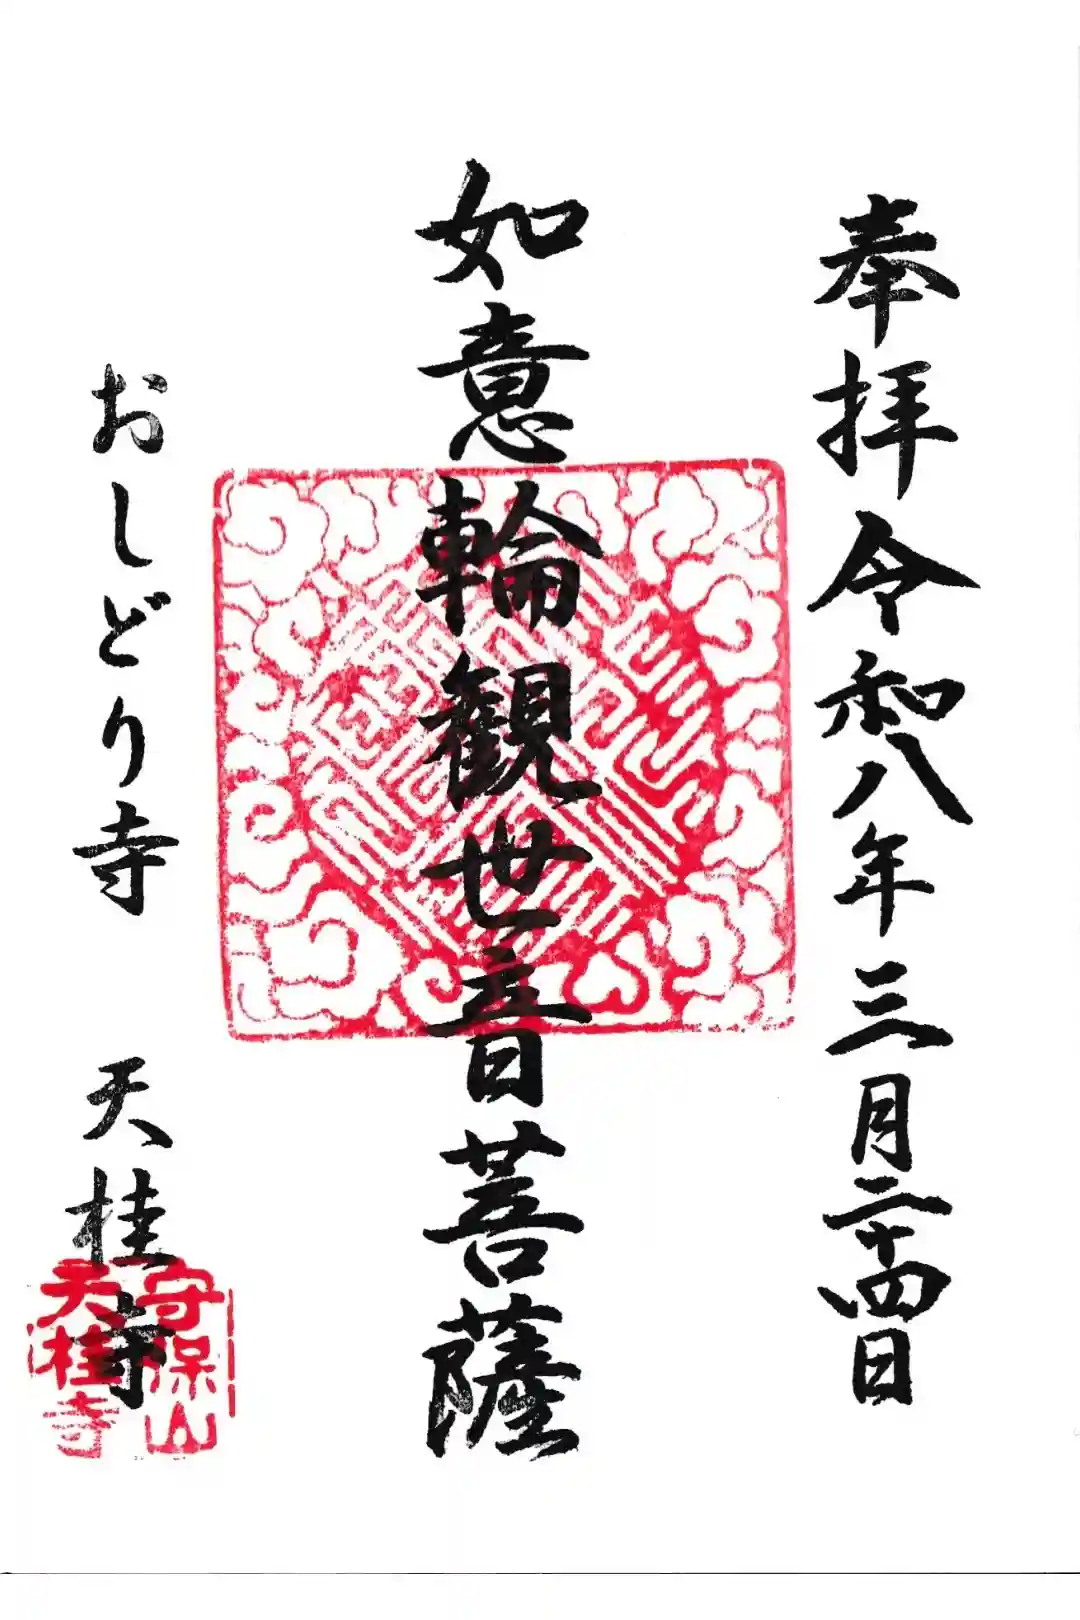 奉拝 令和八年三月二十四日
如意輪観世音菩薩
おしどり寺 天桂寺
守保山
天桂寺